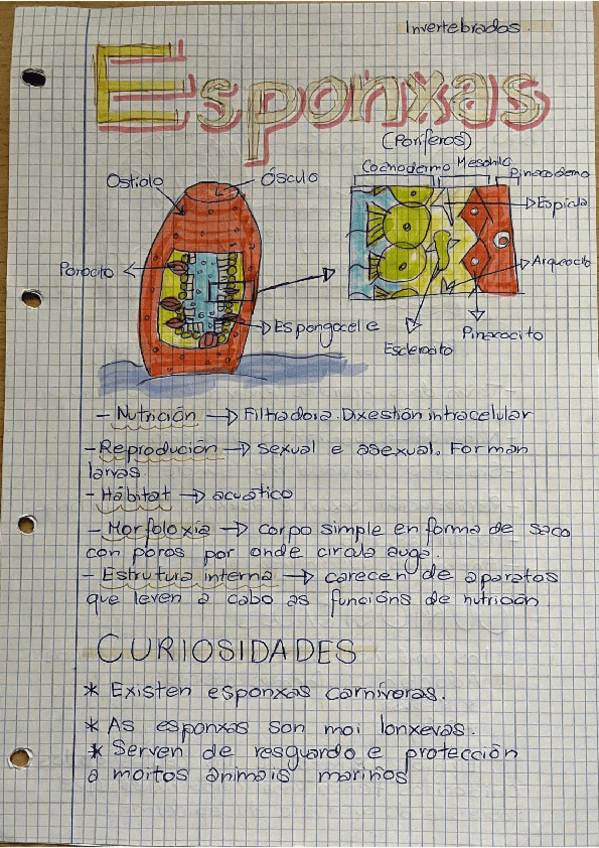 Invertebrados.
Esponxas
(Poríferos)
Coanodermo Mesohilo Pinacodermo
Ostiolo
Ósculo
Espícula
Porocito
Arqueocito
Espongocele
Pinacocito
Esclerocito
- Nutrición → Filtradora. Dixestión intracelular
- Reprodución → sexual e asexual. Forman
larvas
- Hábitat → acuático
- Morfoloxía → corpo simple en forma de saco
con poros por onde circula auga.
- Estrutura interna → carecen de aparatos
que leven a cabo as funcións de nutrición
CURIOSIDADES
* Existen esponxas carnívoras.
* As esponxas son moi lonxevas.
* Serven de resguardo e protección
a moitos animais mariños